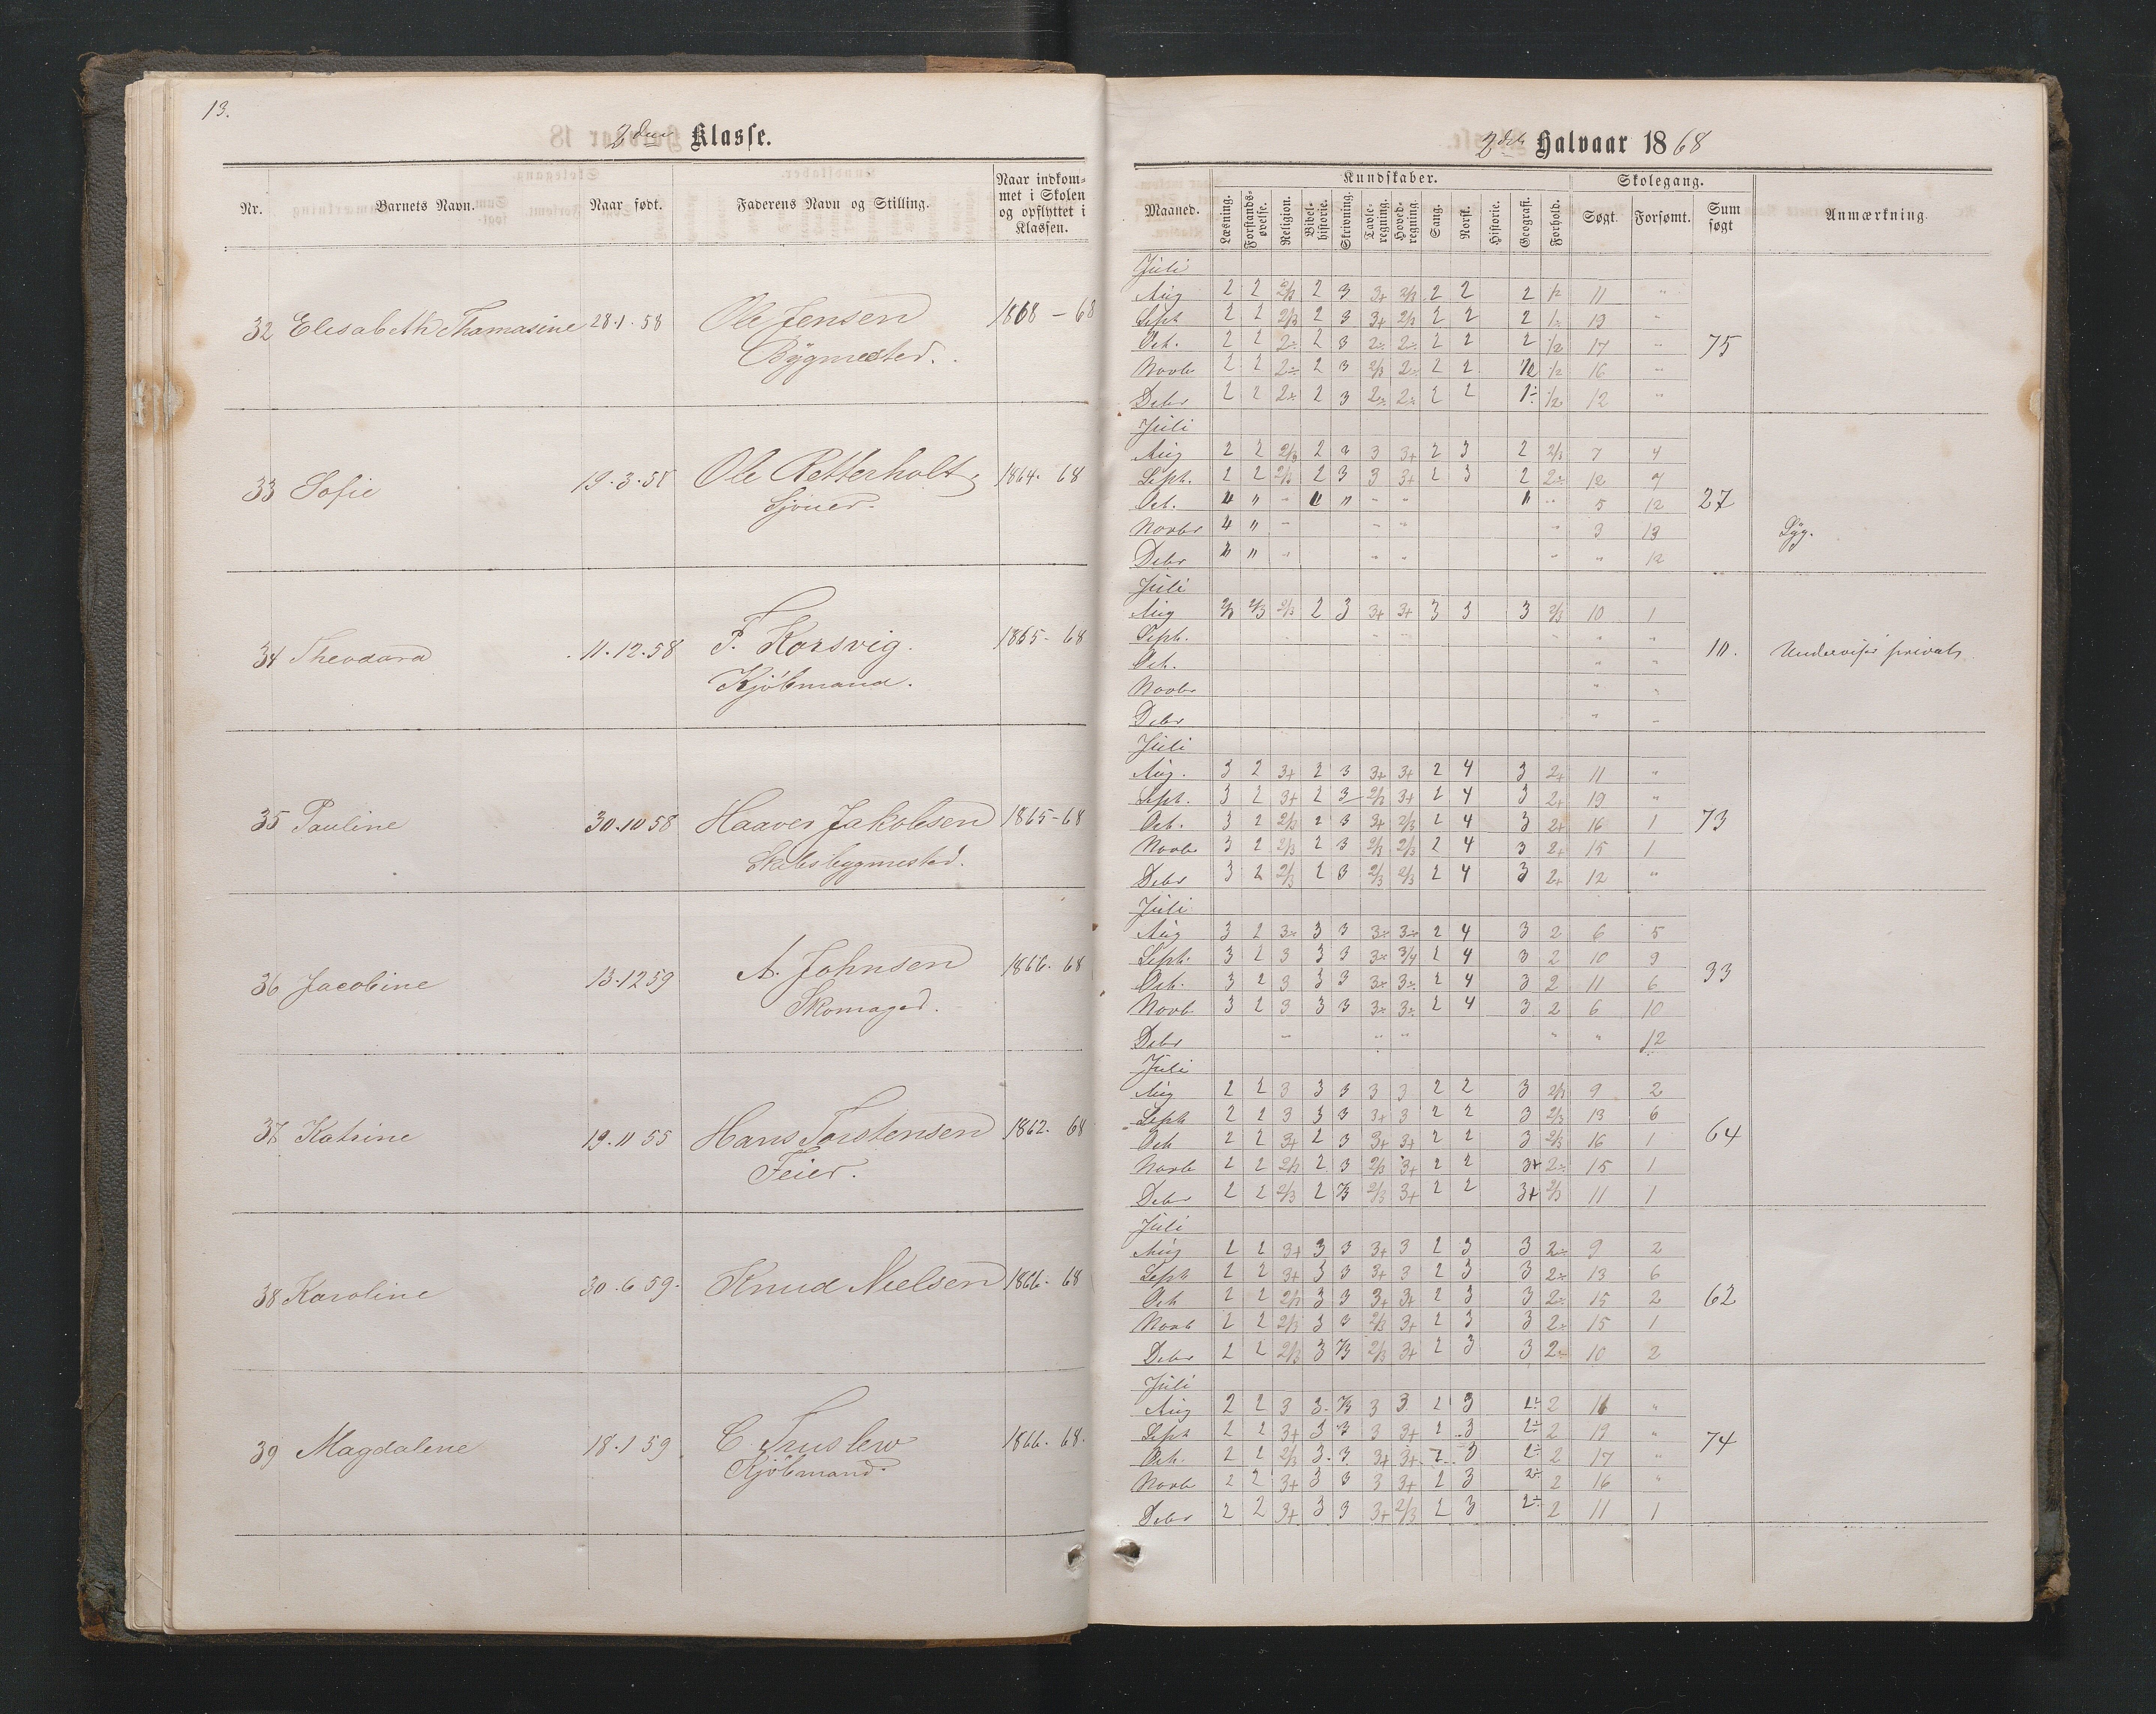 13.
2den Klasse.
Nr. Barnets Navn. Naar født. Faderens Navn og Stilling. Naar indkom-
met i Skolen
og opflyttet i
Klassen.
32 Elisabeth Thamasine 28.1.58 Ole Jensen 1868 – 68
Bÿgmester.
33 Sofie 19.3.58 Ole Retterholt, 1864. 68
Sjouer.
34 Theodora 11.12.58 F. Korsvig. 1865- 68
Kjøbmand.
35 Pauline 30.10 58 Haaver Jakobsen 1865-68
Skibsbygmester.
36 Jacobine 13.12 59 A. Johnsen 1866. 68
Skomager.
37 Katrine 19.11 55 Hans Torstensen 1862. 68
Feier.
38 Karoline 30.6 59. Knud Nielsen 1866. 68
39 Magdalene 18.1 59 C. Truslew 1866. 68.
Kjöbmand.
2det Halvaar 1868
Kundskaber. Skolegang.
Maaned. Læsning. Forstands-
øvelse. Religion. Bibel-
historie. Skrivning. Tavle-
regning. Hoved-
regning. Sang. Norsk. Historie. Geografi. Forhold. Søgt. Forsømt. Sum
søgt Anmærkning
Juli
Aug 2 2 2/3 2 3 3+ 2/3 2 2 2 1/2 11 "
Sept 2 2 2/3 2 3 3+ 2/3 2 2 2 1÷ 19 "
Oct. 2 2 2÷ 2 3 2÷ 2÷ 2 2 2 1/2 17 " 75
Novbr 2 2 2÷ 2 3 2/3 2÷ 2 2 1/2 1/2 16 "
Debr 2 2 2÷ 2 3 2÷ 2÷ 2 2 1÷ 1/2 12 "
Juli
Aug 2 2 2/3 2 3 3 3+ 2 3 2 2/3 7 4
Sept. 2 2 2/3 2 3 3 3+ 2 3 2 2÷ 12 7
Oct. " " " " " " " " " 5 12 27
Novbr " " " " " " 3 13 Sÿg.
Debr " " " " " " " 12
Juli
Aug 2/3 2/3 2/3 2 3 3+ 3+ 3 3 3 2/3 10 1
Sept. " "
Oct. " " 10. Undervises privat
Novbr " "
Debr " "
Juli
Aug. 3 2 3+ 2 3 3+ 3+ 2 4 3 2+ 11 "
Sept. 3 2 3+ 2 3 2/3 3+ 2 4 3 2+ 19 "
Oct. 3 2 2/3 2 3 3+ 2/3 2 4 3 2+ 16 1 73
Novbr 3 2 2/3 2 3 2/3 2/3 2 4 3 2+ 15 1
Debr 3 2 2/3 2 3 2/3 2/3 2 4 3 2+ 12 "
Juli
Aug 3 2 3÷ 3 3 3÷ 3÷ 2 4 3 2 6 5
Sept. 3 2 3 3 3 3÷ 3/4 2 4 3 2 10 9
Oct. 3 2 3 3 3 3÷ 3÷ 2 4 3 2 11 6 33
Novb 3 2 3 3 3 3÷ 3÷ 2 4 3 2 6 10
Debr " " " " " 12
Juli
Aug 2 2 3 3 3 3 3 2 2 3 2/3 9 2
Sept 2 2 3 3 3 3+ 3 2 2 3 2/3 13 6
Oct 2 2 3+ 2 3 3+ 3+ 2 2 3 2/3 16 1 64
Novb 2 2 2/3 2 3 2/3 3+ 2 2 3+ 2÷ 15 1
Debr 2 2 2/3 2 2/3 2/3 3+ 2 2 3+ 2/3 11 1
Juli
Aug 2 2 3+ 3 3 3+ 3 2 3 3 2÷ 9 2
Sept 2 2 3+ 3 3 3+ 3 2 3 3 2÷ 13 6
Oct 2 2 2/3 3 3 3+ 3+ 2 3 3 2÷ 15 2 62
Novb 2 2 2/3 3 3 2/3 3+ 2 3 3 2÷ 15 1
Debr 2 2 2/3 3 2/3 2/3 3+ 2 3 3 2÷ 10 2
Juli
Aug 2 2 3 3. 2/3 3 3 2 3 2÷ 2 11 "
Sept 2 2 3+ 3 3 3 3+ 2 3 2÷ 2 19 "
Oct. 2 2 2/3 3. 3 3+ 3+ 2 3 2÷ 2 17 " 74
Novb 2 2 3+ 3 3 3 3+ 2 3 2÷ 2 16 "
Debr 2 2 3+ 3 3 3+ 2/3 2 3 2÷ 2 11 1